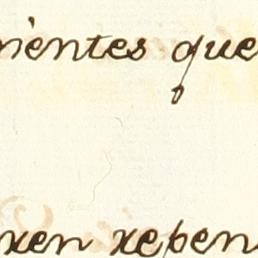 nientes que
xen xepen